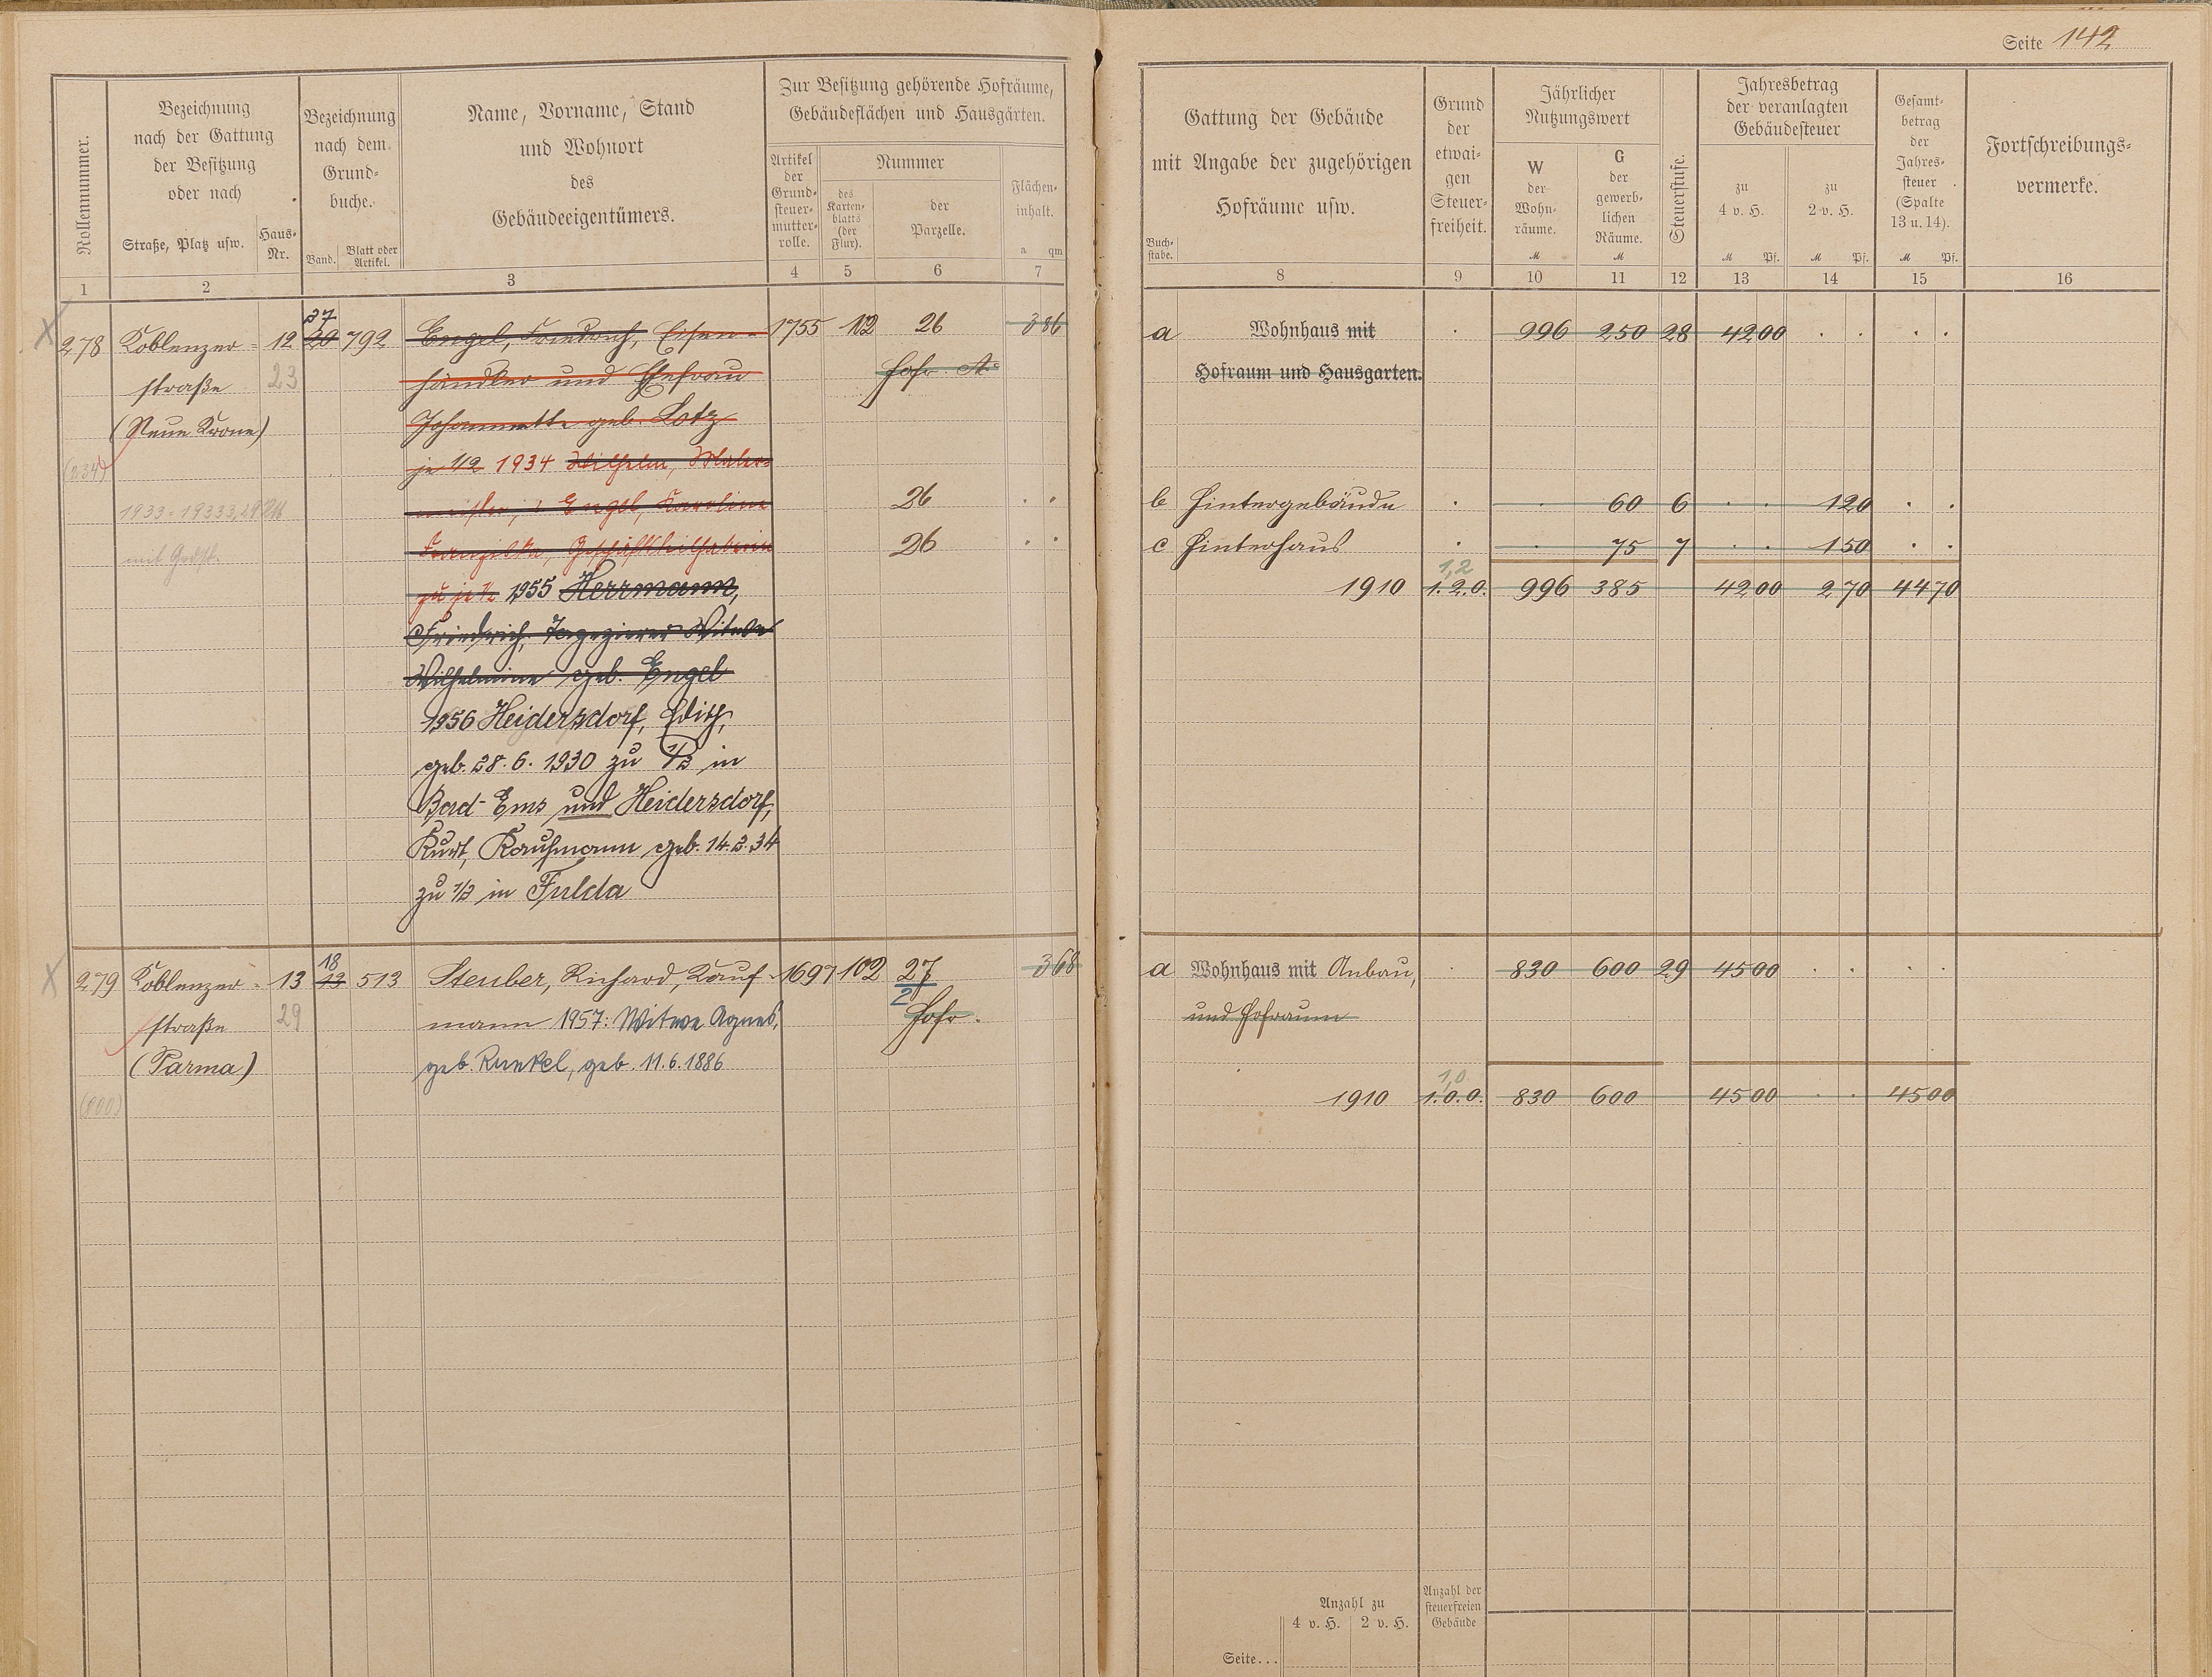 Seite 142
Rollennummer.
Bezeichnung
nach der Gattung
der Besitzung
oder nach
Straße, Platz usw.
Haus-
Nr.
Bezeichnung
nach dem
Grund-
buche.
Band.
Blatt oder
Artikel.
Name, Vorname, Stand
und Wohnort
des
Gebäudeeigentümers.
Zur Besitzung gehörende Hofräume,
Gebäudeflächen und Hausgärten.
Artikel
der
Grund-
steuer-
mutter-
rolle.
Nummer
des
Karten-
blatts
(der
Flur).
der
Parzelle.
Flächen-
inhalt.
a qm
1 2 3 4 5 6 7
Gattung der Gebäude
mit Angabe der zugehörigen
Hofräume usw.
Buch-
stabe.
Grund
der
etwai-
gen
Steuer-
freiheit.
Jährlicher
Nutzungswert
W
der
Wohn-
räume.
M
G
der
gewerb-
lichen
Räume.
M
Steuerstufe.
Jahresbetrag
der veranlagten
Gebäudesteuer
zu
4 v. H.
M Pf.
zu
2 v. H.
M Pf.
Gesamt-
betrag
der
Jahres-
steuer
(Spalte
13 u. 14).
M Pf.
Fortschreibungs-
vermerke.
8 9 10 11 12 13 14 15 16
37
278 Koblenzer- 12 20 792 Engel, Friedrich, Eisen- 1755 102 26 386
straße 23 händler und Ehefrau Hofr.
(Neue Krone) Johannette geb. Lotz
je 1/2 1934 Wilhelm, Maler-
meister, Engel, Karoline 26
mit Grdst. Franziska, Geschäftsteilhaberin 26
zu je 1/2 1955 Herrmann,
Friedrich, Tapezierer Witwe
Wilhelmine geb. Engel
1956 Heidersdorf, Edith,
geb. 28.6.1930 zu 1/2 in
Bad-Ems und Heidersdorf,
Kurt, Kaufmann geb. 14.2.34
zu 1/2 in Fulda
a Wohnhaus mit 996 250 28 42 00
Hofraum und Hausgarten.
b Hintergebäude 60 6 1 20
c Hinterhaus 75 7 1 50
1,2
1910 1.2.0. 996 385 42 00 2 70 44 70
18
279 Koblenzer- 13 13 513 Steuber, Richard, Kauf- 1697 102 27 368
straße 29 mann 1957: Witwe Agnes, 2 Hofr.
(Parma) geb. Runkel, geb. 11.6.1886
a Wohnhaus mit Anbau, 830 600 29 45 00
und Hofraum
1,0
1910 1.0.0. 830 600 45 00 45 00
Anzahl zu
4 v. H. 2 v. H.
Anzahl der
steuerfreien
Gebäude
Seite...